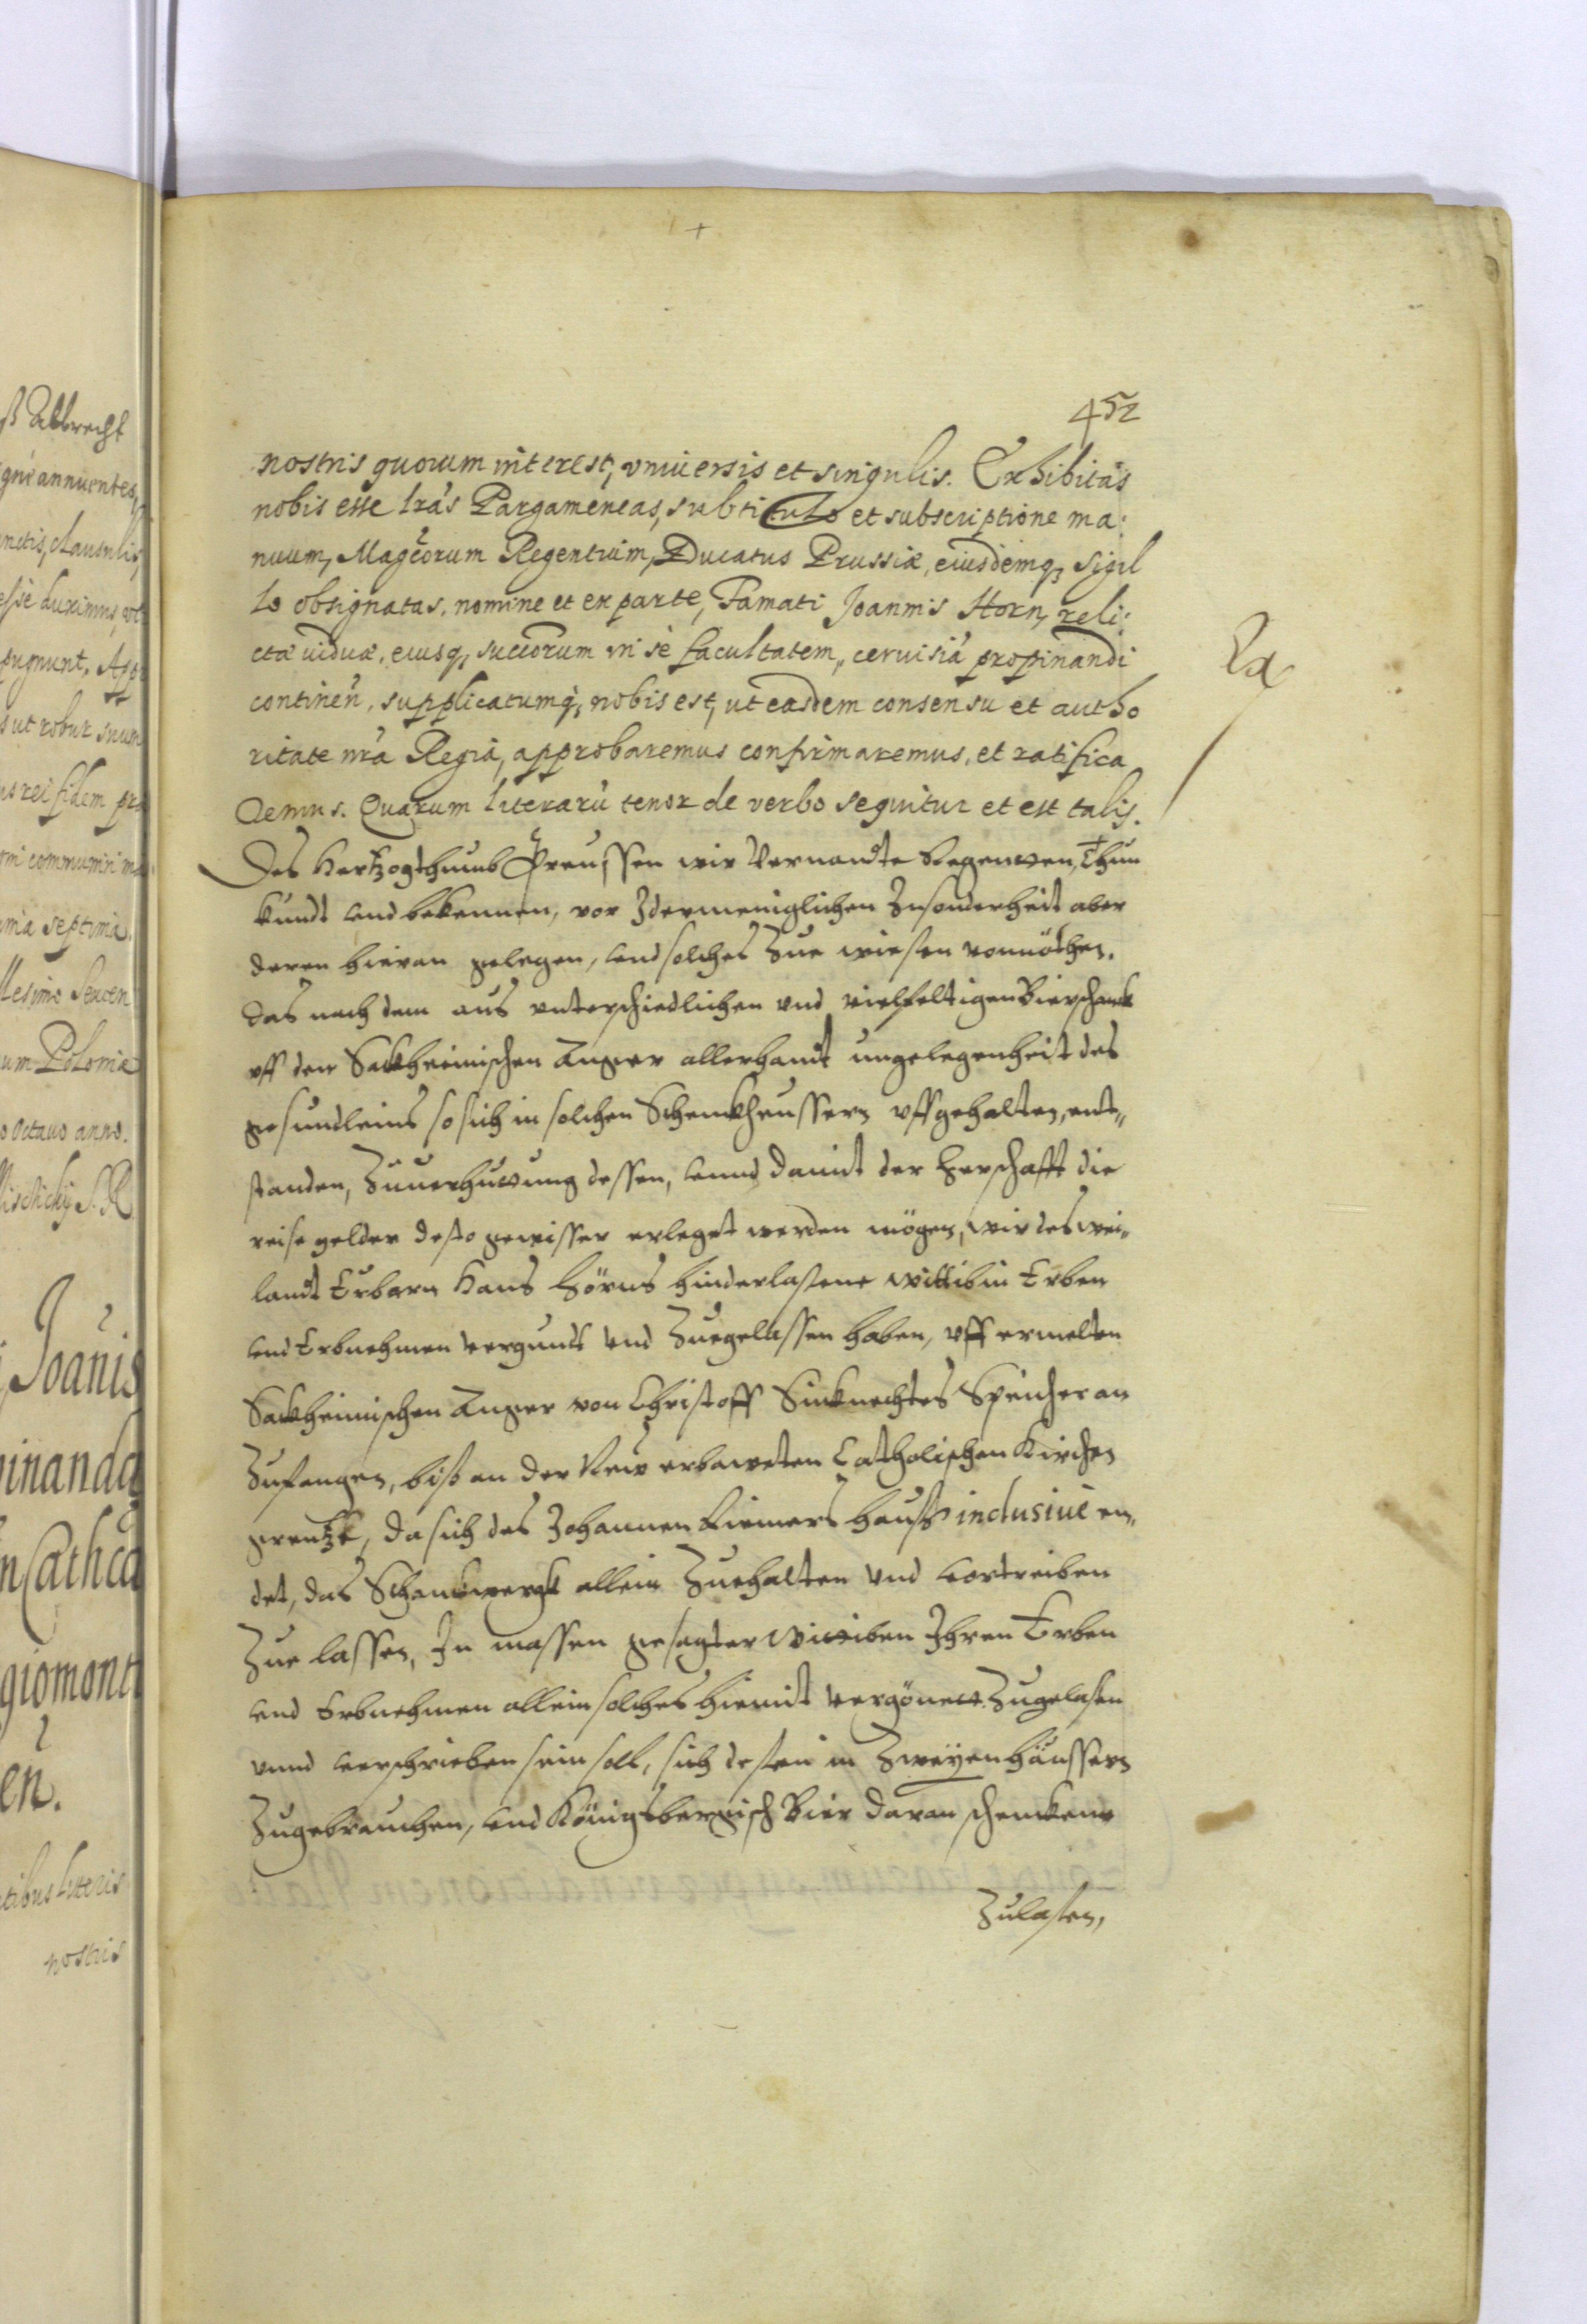 452
nostris quorum interest, vniuersis et singulis. Exhibitas
nobis esse lrãs Pargameneas, subtitulo et subscriptione ma:
nuum, Magcorum Regentium, Ducatus Prussiæ, eiusdemq, sigil
lo obsignatas, nomine et ex parte, Famati Joannis Horn, reli:
ctæ viduæ, eiusq, succorum in se facultatem, ceruisiã propinandi
continen, supplicatumq, nobis est, ut easdem consensu et autho
ritate nrã Regia, approbaremus confirmaremus, et ratifica
remus. Quarum literarũ tenor de verbo sequitur et est talis.
Des Hertzogthumb Preussen wir Vernandte Regenten, Thun
kundt vnd bekennen, vor Idermenniglichen Insonderheit aber
denen hieran gelegen, vnd solches Zue wissen vonnöthen.
das nach dem aus unterschiedlichen vnd vielfeltigen Bierschanck
vff den Sackheimischen Anger allerhandt ungelegenheit des
gesindleins so sich in solchen Schenckheussern vffgehalten, ent„
standen, Zuuerhutung dessen, vnnd damit der Herschafft die
 gelder desto gewisser erleget werden mögen, wir des wei„
landt Erbarn Hans Hörns hinderlassene Wittibin Erben
vnd Erbnehmen vergundt vnd Zuegelassen haben, vff ermelten
Sackheimischen Anger von Christoff Sinknechtes Speicher an
Zufangen, biß an der New erbaweten Catholischen Kirchen
grentze, da sich des Johannen Riemers Hauß inclusiue en„
det, das Schanckwergk allein Zuehalten vnd vortreiben
Zue lassen, In massen gesagter Wittiben Ihren Erben
vnd Erbnehmen allein solches hiemit vergönnet Zugelassen
vnnd verschrieben sein soll, sich dessen in Zweyen Häussern
Zugebrauchen, vnd Königsbergisch Bier daran schencken
Zulassen,
ß Albrecht
gne annuentes,
nctis, clausulis,
esse duximus,
pugnunt. App
s ut robur suum
us rei fidem pr
om communiri m
ima septima.
llesimo Sexcen
um Poloniæ
o octauo anno.
S. R
Joanis
pinanda
n Catho
giomont
en.
tibus Literis
nostris